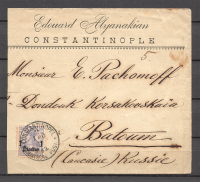 Edouard Alyanakian
CONSTANTINOPLE
5
Monsieur E. Pachomoff
Dondouk Korsakovskaïa
Batoum
(Caucasie) Russie